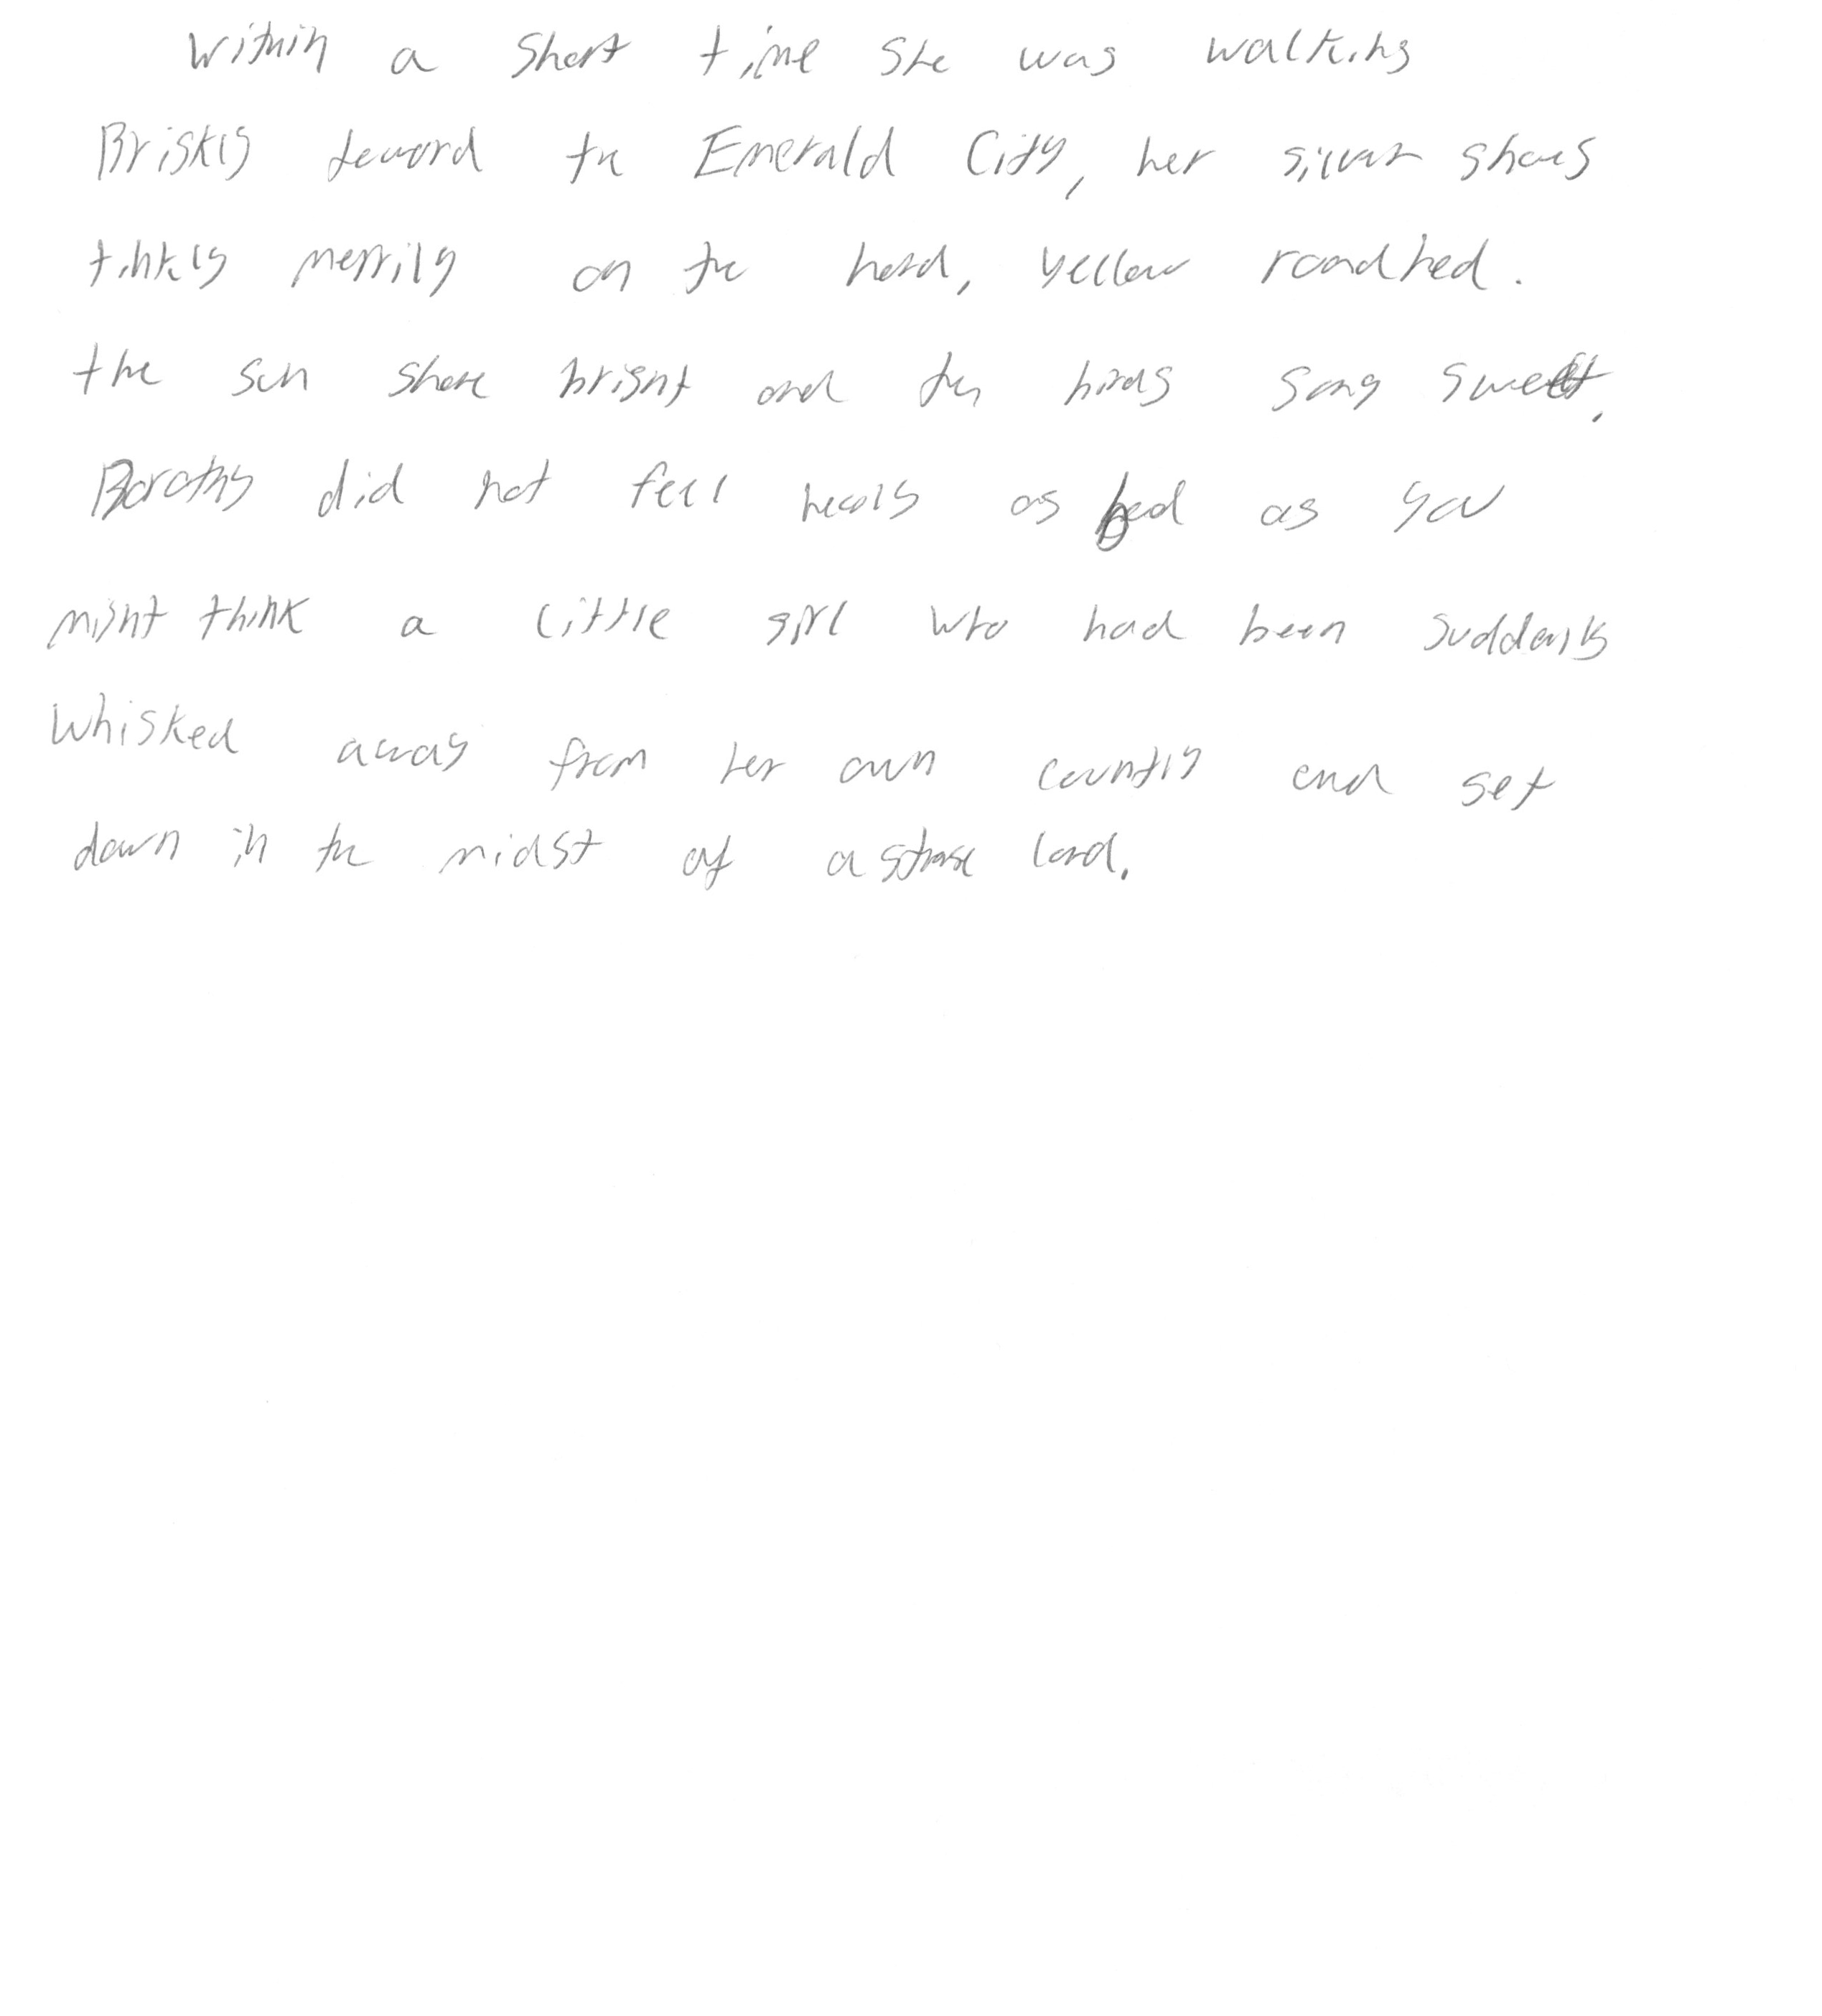 Within a short time she was walking
Briskly toward the Emerald City, her silver shoes
tinkly merrily on the hard, yellow roadbed.
the sun shone bright and the birds sang sweet.
Dorothy did not feel nearly as bad as you
might think a little girl who had been suddenly
whisked away from her own country and set
down in the midst of a strange land.